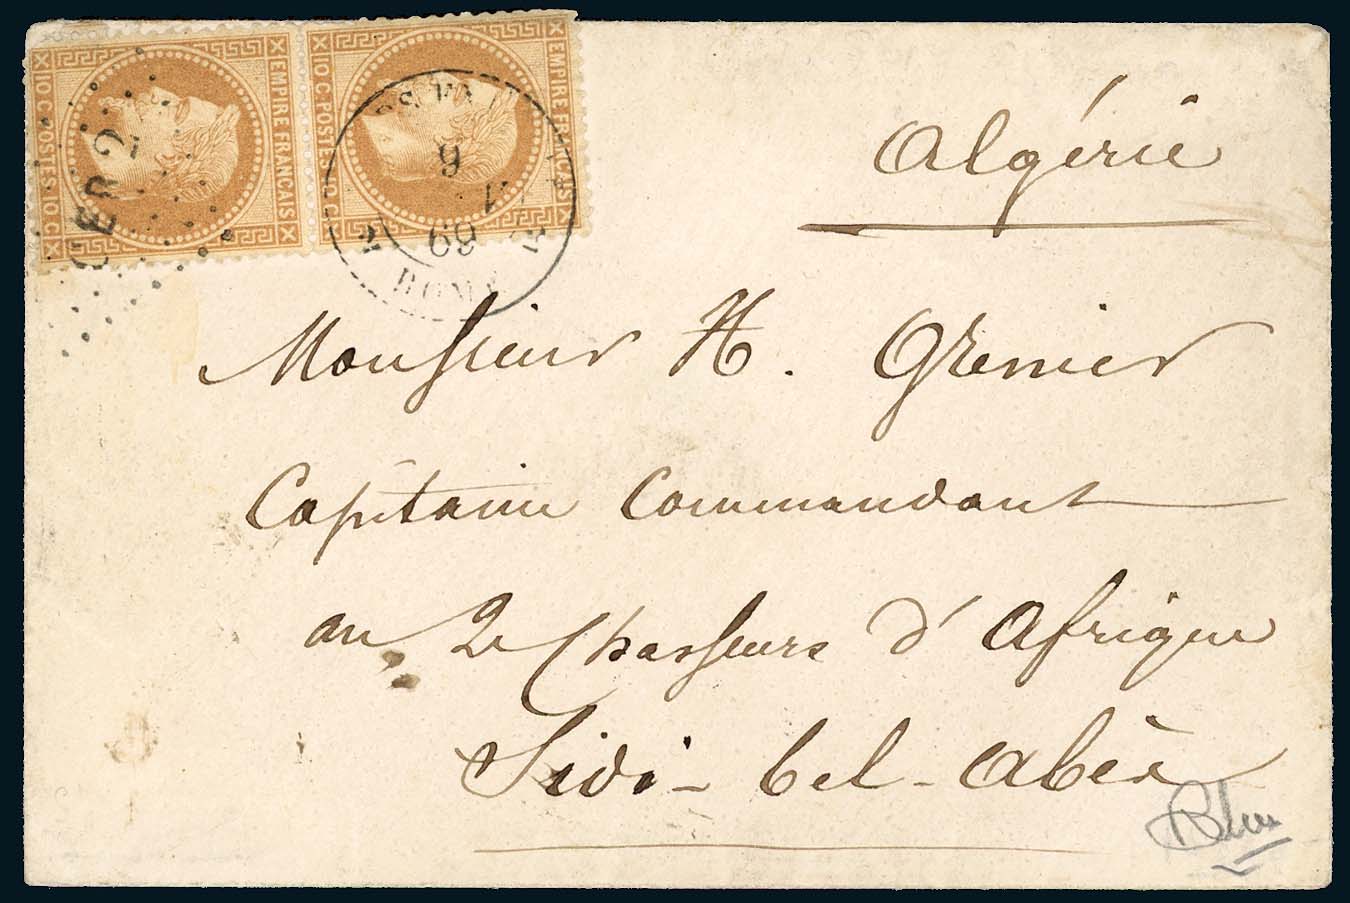 EMPIRE FRANÇAIS
10 C POSTES 10 C
EMPIRE FRANÇAIS
10 C POSTES 10 C
CER 2
9
69
2
ROME
Algérie
Monsieur H. Grenier
Capitaine Commandant
au 2e Chasseurs d'Afrique
Sidi-bel-Abès